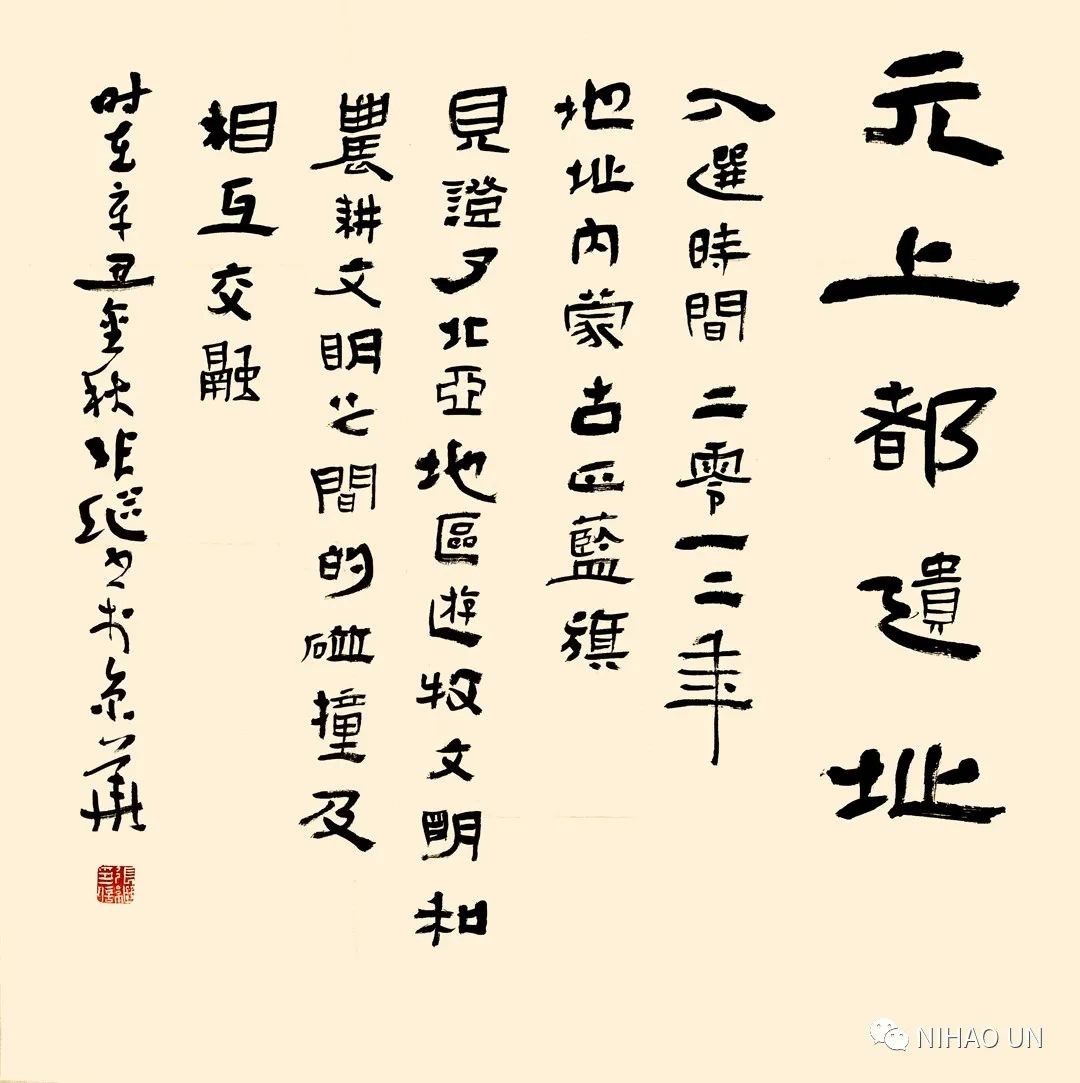 元上都遺址
入選時間 二零一二年
地址内蒙古正藍旗
見證了北亞地區遊牧文明和
農耕文明之間的碰撞及
相互交融
时在辛丑金秋张继书於京華
張繼印信
NIHAO UN